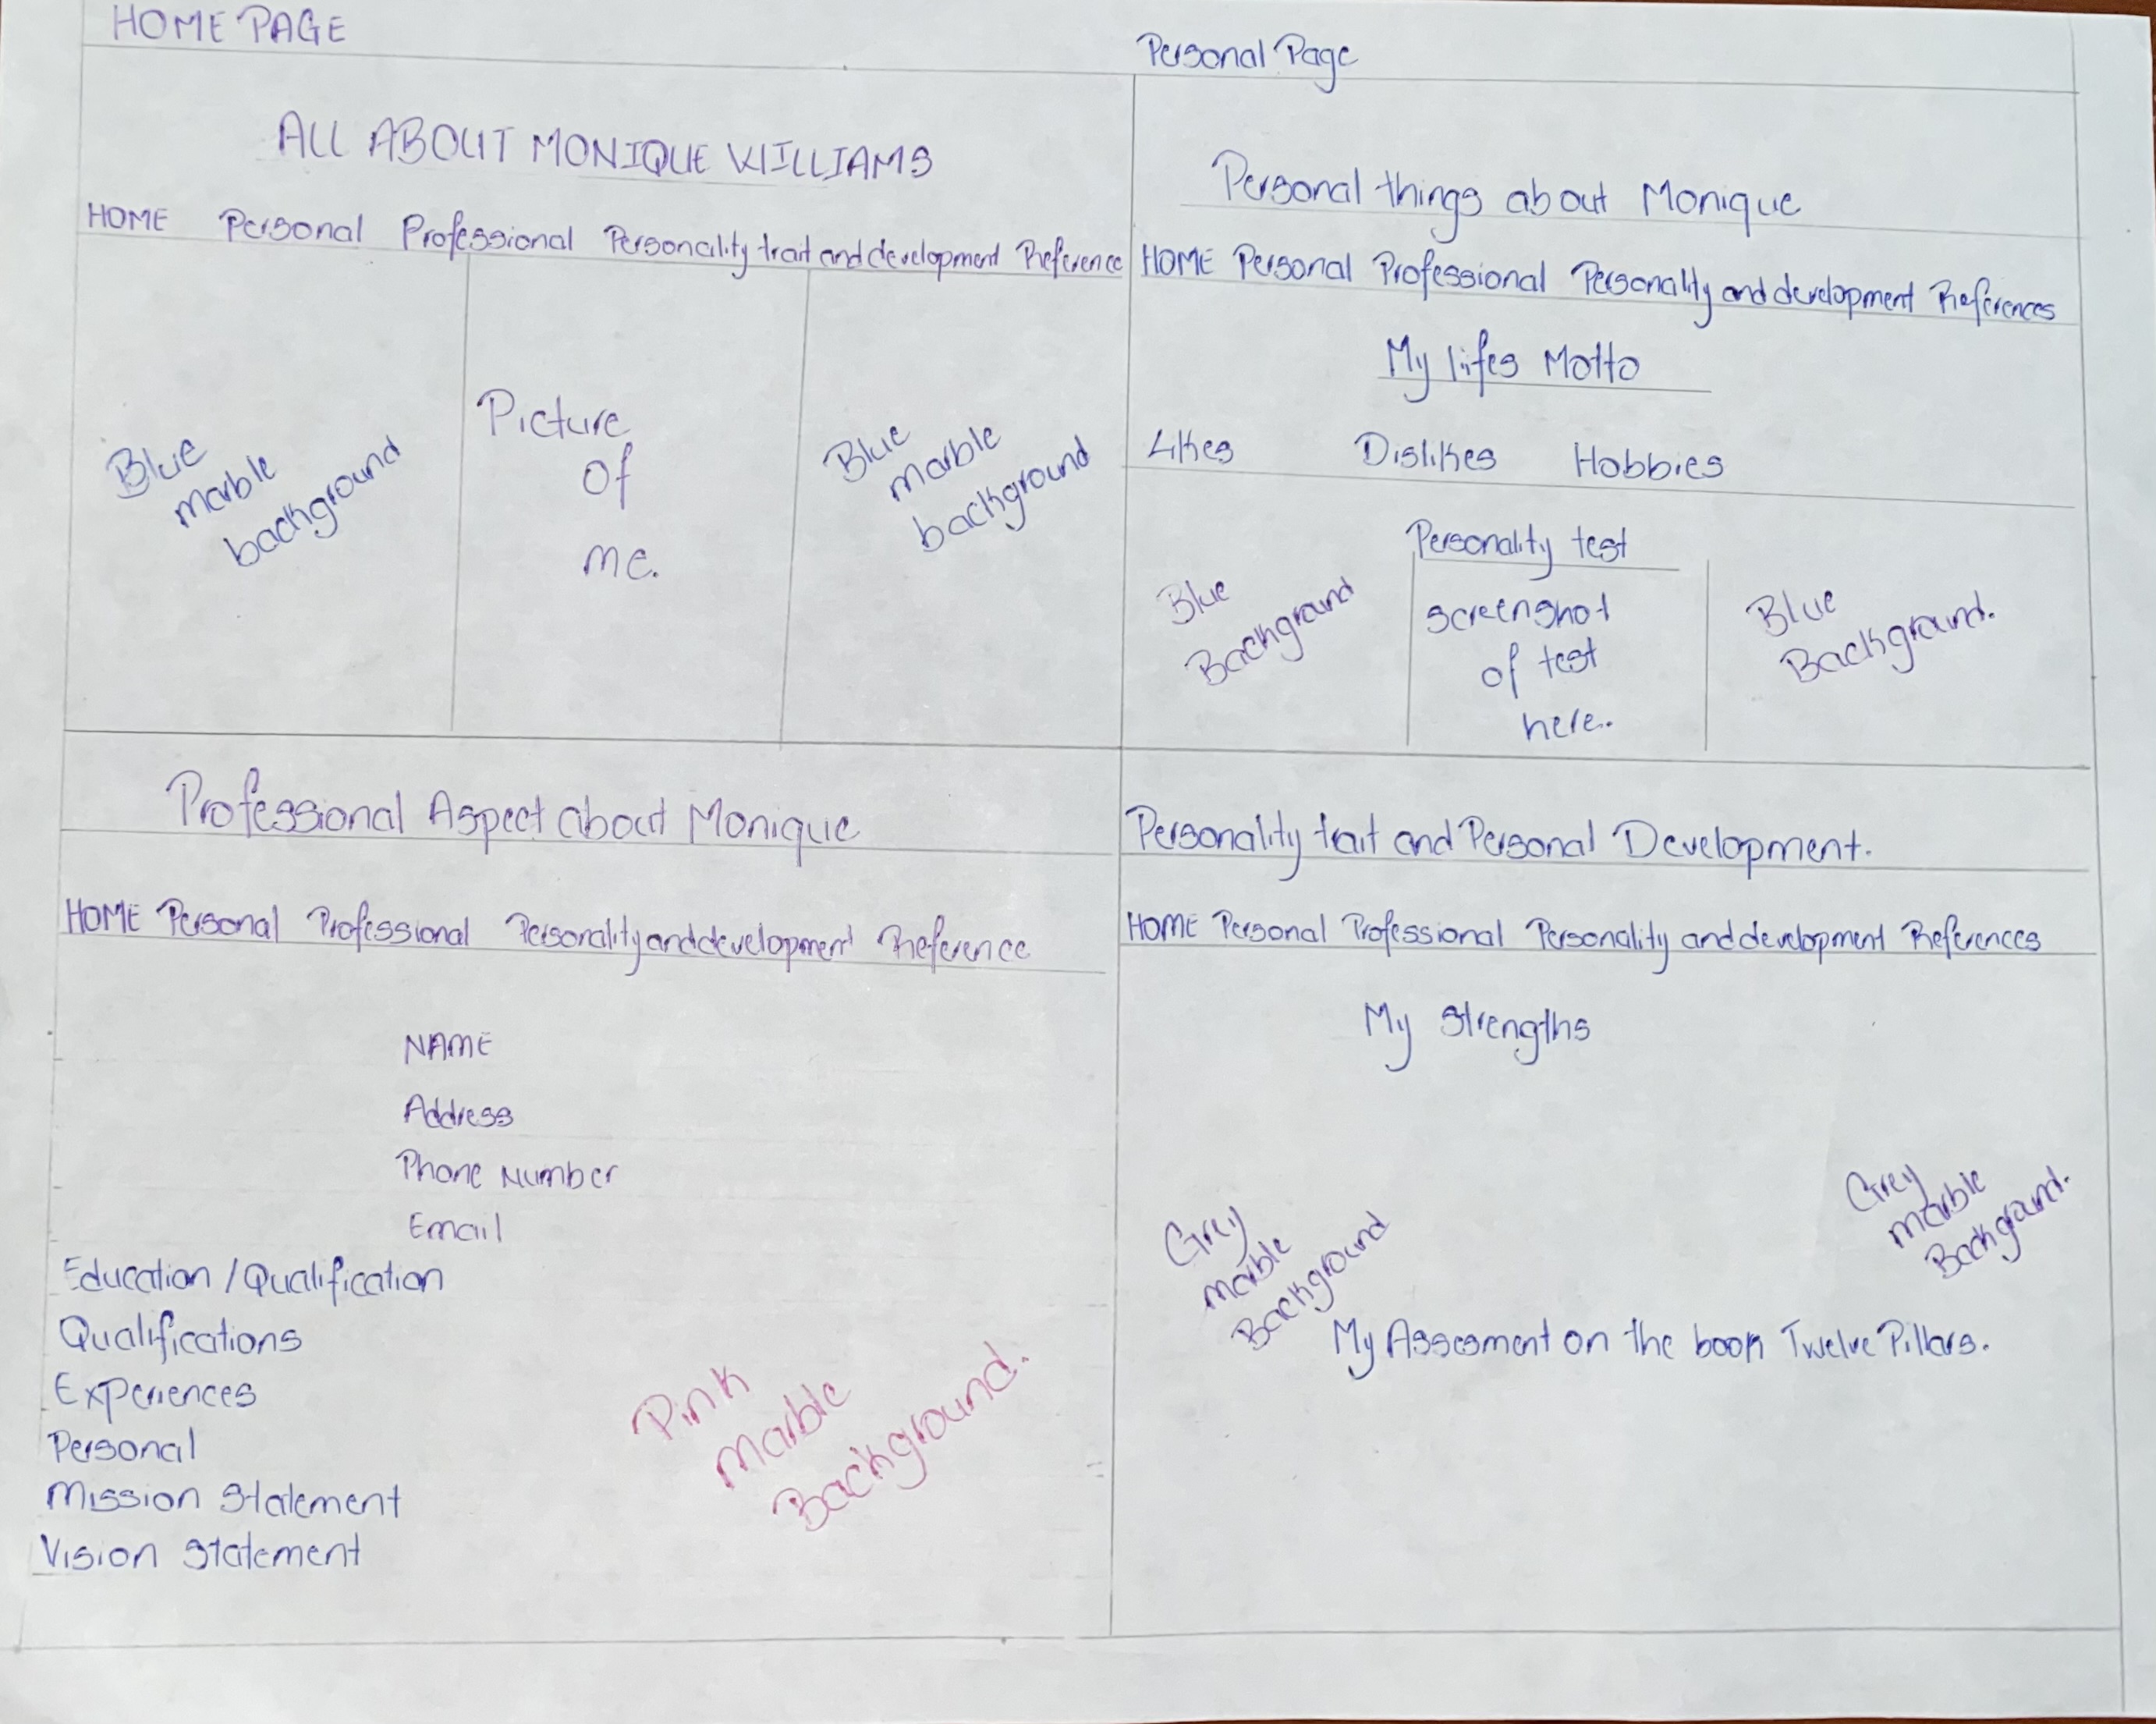 HOME PAGE
ALL ABOUT MONIQUE WILLIAMS
HOME Personal Professional Personality trait and development Reference
Blue
marble
background
Picture
Of
me.
Blue
marble
background
Personal Page
Personal things about Monique
HOME Personal Professional Personality and development References
My lifes Motto
Likes Dislikes Hobbies
Personality test
Blue
Background
screenshot
of test
here.
Blue
Background.
Professional Aspect about Monique
HOME Personal Professional Personality and development Reference
NAME
Address
Phone Number
Email
Education / Qualification
Qualifications
Experiences
Personal
Mission Statement
Vision Statement
Pink
Marble
Background.
Personality trait and Personal Development.
HOME Personal Professional Personality and development References
My Strengths
Grey
marble
Background
Grey
marble
Background.
My Assesment on the book Twelve Pillars.